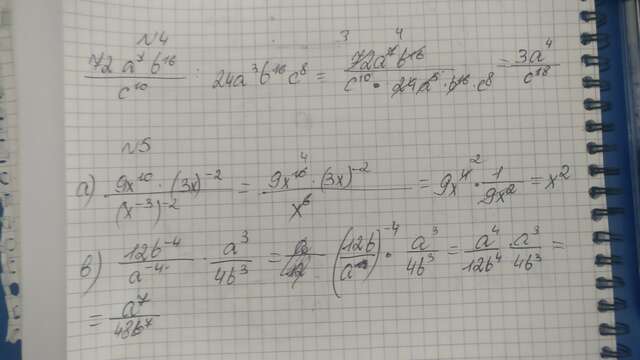 N4
72 a^7 b^16 / c^10 : 24a^3b^16c^8 = 72a^7b^16 / c^10 · 24a^3 · b^16 · c^8 = 3a^4 / c^18
N5
a) 9x^10 · (3x)^-2 / (x^-3)^-2 = 9x^10 · (3x)^-2 / x^6 = 9x^4 · 1 / 9x^2 = x^2
в) 12b^-4 / a^-4 · a^3 / 4b^3 = (12b / a)^-4 · a^3 / 4b^3 = a^4 / 12b^4 · a^3 / 4b^3 =
= a^7 / 48b^7